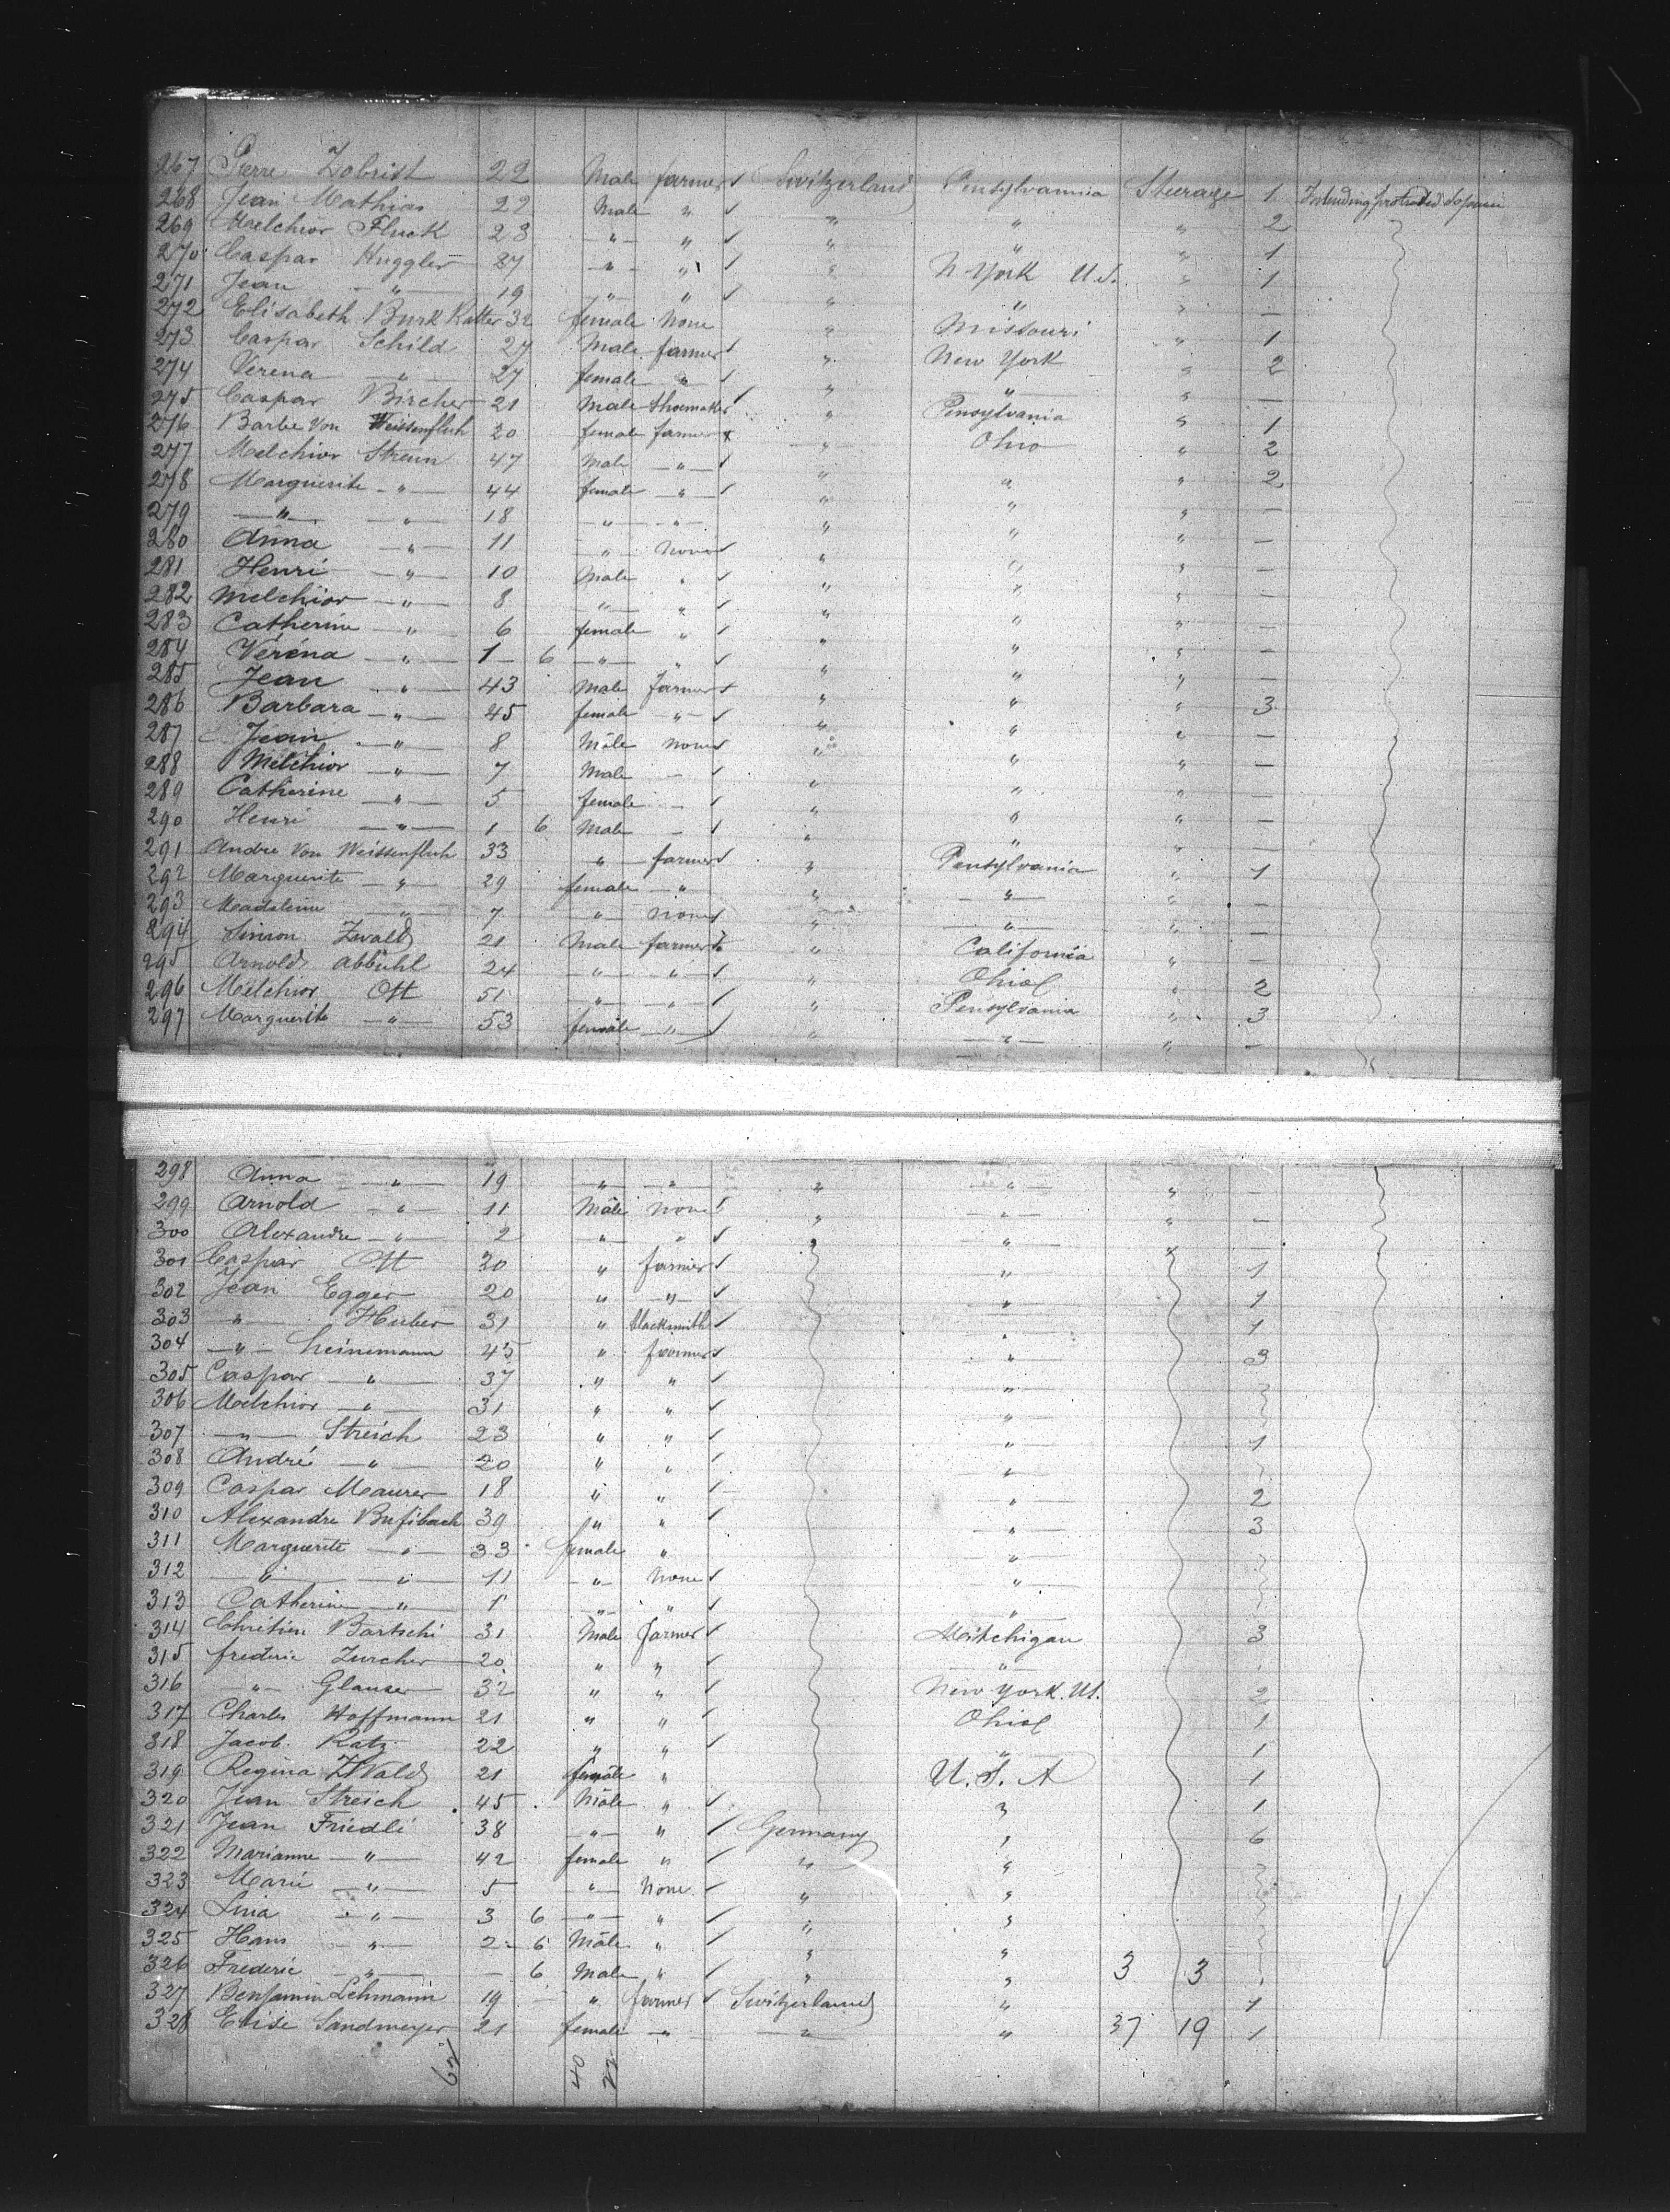 267 Pierre Zobrist 22 Male farmer Switzerland Pensylvannia Steerage 1 Intending protracted Sojourn
268 Jean Mathias 22 Male " " " " 2
269 Melchior Fluck 23 " " " " " 1
270 Caspar Huggler 27 " " " N York U.S. " 1
271 Jean " 19 " " " " " —
272 Elisabeth Burk Ratter 32 female None " Missouri " 1
273 Caspar Schild 27 Male farmer " New York " 2
274 Verena " 27 female " " " " —
275 Caspar Bircher 21 Male Shoemaker " Pensylvania " 1
276 Barbe Von Weissenfluh 20 female farmer " Ohio " 2
277 Melchior Streun 47 Male " " " " 2
278 Marguerite " 44 female " " " " —
279 " " 18 " " " " " —
280 Anna " 11 " None " " " —
281 Henri " 10 Male " " " " —
282 Melchior " 8 " " " " " —
283 Catherine " 6 female " " " " —
284 Véréna " 1 6 " " " " " —
285 Jean " 43 Male farmer " " " 3
286 Barbara " 45 female " " " " —
287 Jean " 8 Male none " " " —
288 Melchior " 7 Male — " " " —
289 Catherine " 5 female — " " " —
290 Henri " 1 6 Male — " " " —
291 Andre Von Weissenfluh 33 " farmer " Pensylvania " 1
292 Marguerite " 29 female " " " " —
293 Madeleine " 7 " None " " " —
294 Simon Zwald 21 Male farmer " California " —
295 Arnold Abbühl 24 " " " Ohio " 2
296 Melchior Ott 51 " " " Pensylvania " 3
297 Marguerite " 53 female " " " " —
298 Anna " 19 " " " " " —
299 Arnold " 11 Male None " " " —
300 Alexandre " 2 " " " " " —
301 Caspar Ott 20 " farmer " 1
302 Jean Egger 20 " " " 1
303 " Huber 31 " blacksmith " 1
304 " Leinemann 45 " farmer " 3
305 Caspar " 37 " " "
306 Melchior " 31 " " "
307 " Streich 23 " " " 1
308 André " 20 " " "
309 Caspar Maurer 18 " " " 2
310 Alexandre Bufibach 39 " " " 3
311 Marguerite " 33 female " "
312 " " 11 " None "
313 Catherine " 1 " " "
314 Chrétien Bartschi 31 Male farmer Mitchigan 3
315 frederic Zurcher 20 " " "
316 " Glauser 32 " " New York. US. 2
317 Charles Hoffmann 21 " " Ohio 1
318 Jacob Katz 22 " " " 1
319 Regina ZWald 21 female " U. S. A 1
320 Jean Streich 45 Male " " 1
321 Jean Friedli 38 " " Germany " 6
322 Marianne " 42 female " " "
323 Marie " 5 " None " "
324 Lina " 3 6 " " " "
325 Hans " 2 6 Male " " "
326 Frederic " — 6 Male " " " 3 3
327 Benjamin Lehmann 19 " farmer Switzerland " 1
328 Elise Sandmeyer 21 female " " " 37 19 1
62 40 22